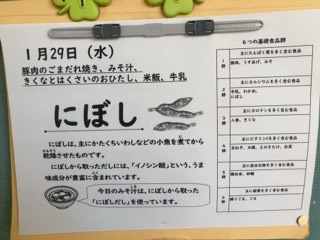 1月29日(水)
豚肉のごまだれ焼き、みそ汁、
きくなとはくさいのおひたし、米飯、牛乳
にぼし
にぼしは、主にかたくちいわしなどの小魚を煮てから
乾燥させたものです。
にぼしから取っただしには、「イノシン酸」という、うま
味成分が豊富に含まれています。
今日のみそ汁は、にぼしから取った
「にぼしだし」を使っています。
6つの基礎食品群
主にたんぱく質を多く含む食品
1群
豚肉、うすあげ、みそ
主にカルシウムを多く含む食品
2群
牛乳、わかめ、
にぼし
主にカロテンを多く含む食品
3群
人参、きくな
主にビタミンCを多く含む食品
4群
玉ねぎ、大根、えのきたけ、白菜
主に炭水化物を多く含む食品
5群
精白米、砂糖
主に脂質を多く含む食品
6群
練りごま、ごま